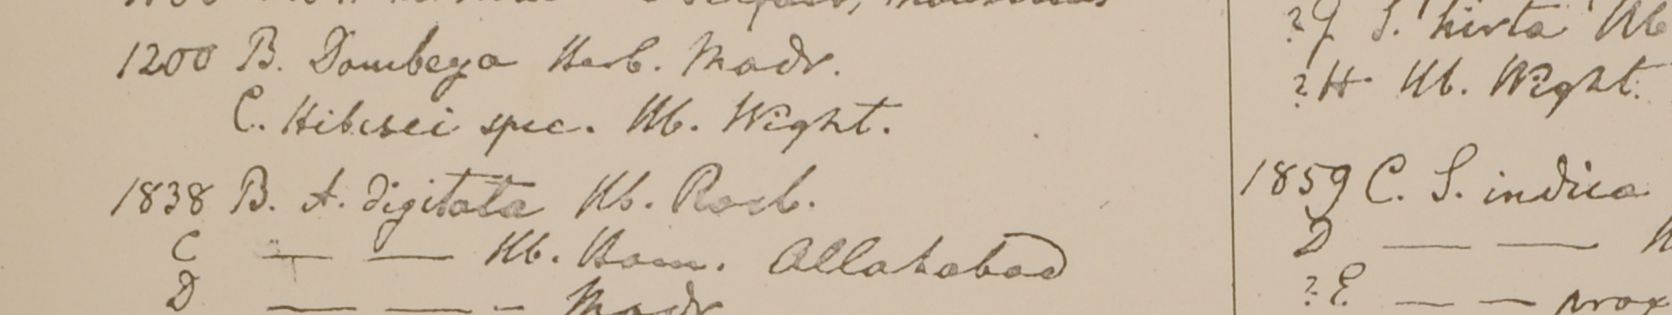 1200 B. Dombeya Herb. Madr.
C. Hibisci spec. Hb. Wight.
1838 B. A. digitata Hb. Roxb.
C — — Hb. Ham. Allahabad
D — — – Madr
?G S. hirta Hb
?H Hb. Wight.
1859 C. S. indica
D — —
?E — — prox